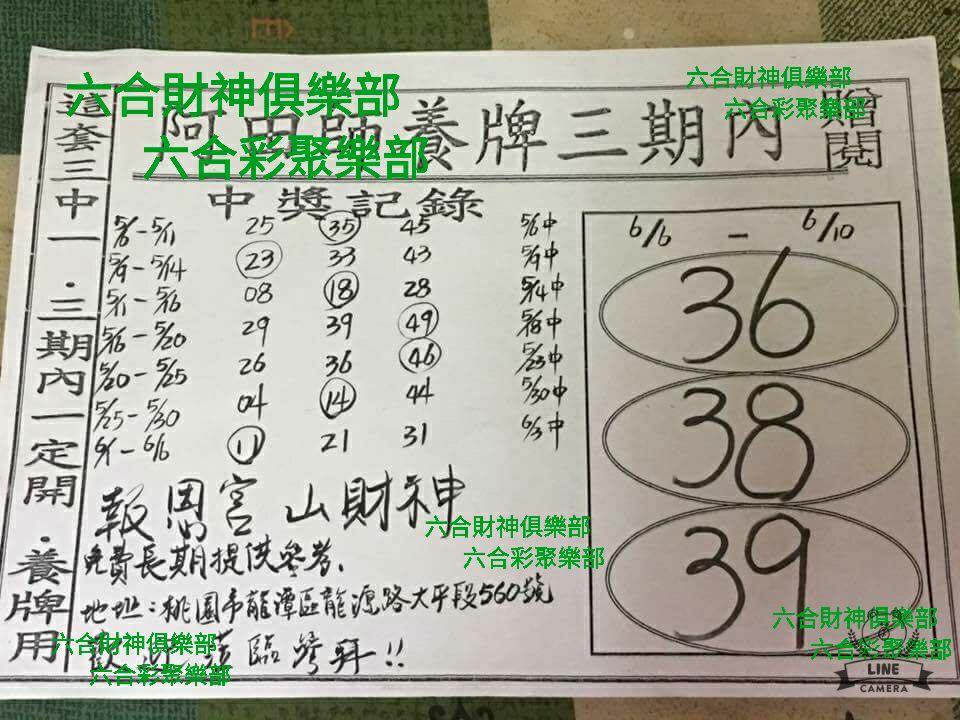 這套三中一．三期內一定開．養牌用
六合財神俱樂部
六合彩聚樂部
六合財神俱樂部
六合彩聚樂部
阿田師養牌三期內
贈閱
中獎記錄
5/6-5/11 25 35 45 5/6中
5/9-5/14 23 33 43 5/9中
5/11-5/16 08 18 28 5/14中
5/16-5/20 29 39 49 5/18中
5/20-5/25 26 36 46 5/23中
5/25-5/30 04 14 44 5/30中
6/1-6/6 11 21 31 6/3中
6/6 - 6/10
36
38
39
報恩宮 山財神
六合財神俱樂部
六合彩聚樂部
免費長期提供參考.
地址：桃園市龍潭區龍源路大平段560號
臨參拜!!
六合財神俱樂部
六合彩聚樂部
六合財神俱樂部
六合彩聚樂部
LINE
CAMERA